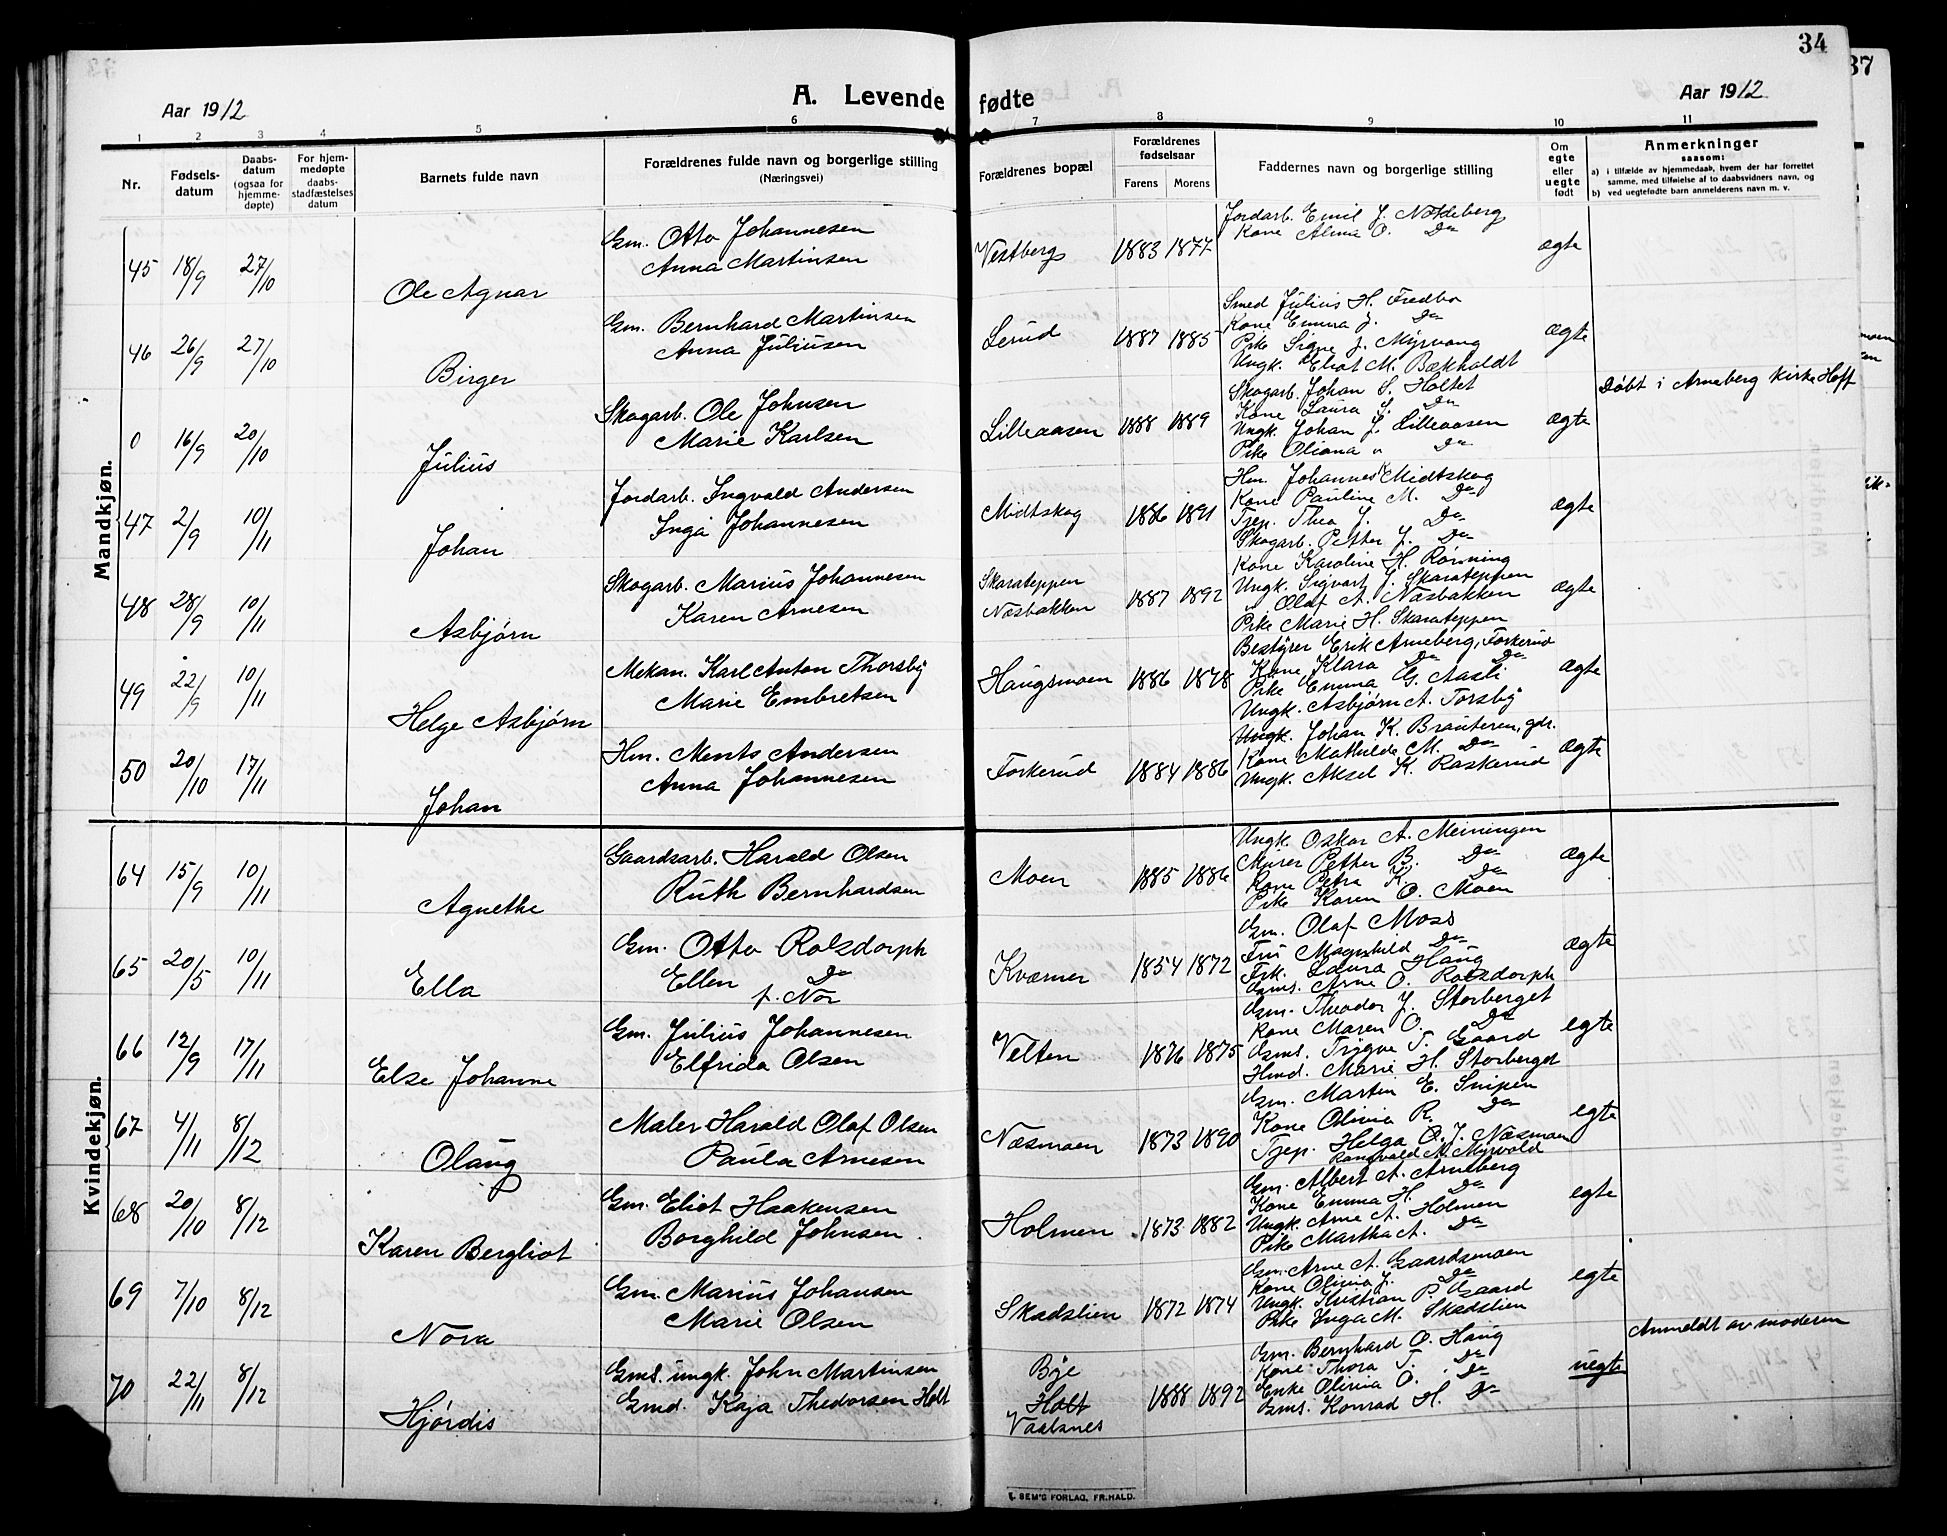 34
37
Aar 1912
A. Levende fødte
Aar 1912
1 2 3 4 5 6 7 8 9 10 11
Nr.
Fødsels-
datum
Daabs-
datum
(ogsaa for
hjemme-
døpte)
For hjem-
medøpte
daabs-
stadfæstelses
datum
Barnets fulde navn
Forældrenes fulde navn og borgerlige stilling
(Næringsvei)
Forældrenes bopæl
Forældrenes
fødselsaar
Farens Morens
Faddernes navn og borgerlige stilling
Om
egte
eller
uegte
født
Anmerkninger
saasom:
a) i tilfælde av hjemmedaab, hvem der har forrettet
samme, med tilføielse af to daabsvidners navn, og
b) ved uegtefødte barn anmelderens navn m. v.
Mandkjøn.
45 18/9 27/10
Ole Agnar
Gm. Otto Johannesen
Anna Martinsen
Vestberg 1883 1877
Jordarb. Emil J. Noldeberg
Kone Alma O. Do
ægte
46 26/9 27/10
Birger
Gm. Bernhard Martinsen
Anna Juliusen
Lerud 1887 1885
Smed Julius H. Fredbo
Kone Emma J. Do
Pike Signe J. Myrvang
Ungk. Eliot M. Bækholdt
ægte
0 16/9 20/10
Julius
Skogarb. Ole Johnsen
Marie Karlsen
Lilleaasen 1888 1889
Skogarb. Johan S. Holtet
Kone Laura S. Do
Ungk. Johan J. Lilleaasen
Pike Oliana " Do
ægte
Døbt i Arneberg Kirke Hoff
47 2/9 10/11
Johan
Jordarb. Ingvald Andersen
Inga Johannesen
Midtskog 1886 1891
Hm. Johannes Midtskog
Kone Pauline M. Do
Tjep. Thea J. Do
Skogarb. Petter J. Do
ægte
48 28/9 10/11
Asbjørn
Skogarb. Marius Johannesen
Karen Arnesen
Skarateppen
Næsbakken
1887 1892
Kone Karoline H. Rønning
Ungk. Sigvart J. Skarateppen
" Olaf A. Næsbakken
Pike Marie H. Skarateppen
ægte
49 22/9 10/11
Helge Asbjørn
Mekan. Karl Anton Thorsby
Marie Embretsen
Haugsmoen 1886 1878
Bestyrer Erik Arneberg, Forkerud
Kone Klara Do Do
Pike Emma G. Aasli
Ungk. Asbjørn A. Torsby
ægte
50 20/10 17/11
Johan
Hm. Ments Andersen
Anna Johannesen
Forkerud 1884 1886
Ungk. Johan K. Brauteren, gdr.
Kone Mathilde M. Do
Ungk. Aksel K. Raskerud
ægte
Kvindekjøn.
64 15/9 10/11
Agnethe
Gaardsarb. Harald Olsen
Ruth Bernhardsen
Moen 1885 1886
Ungk. Oskar A. Meiningen
Murer Petter B. Do
Kone Petra K. Do
Pike Karen O. Moen
ægte
65 20/5 10/11
Ella
Gm. Otto Rolsdorph
Ellen Do
f. Nor
Kværner 1854 1872
Gm. Olaf Moss
Fru Magnhild Do
Frk. Laura Haug
Gms. Arne O. Rolsdorph
ægte
66 12/9 17/11
Else Johanne
Gm. Julius Johannesen
Elfrida Olsen
Velten 1876 1875
Gm. Theodor J. Storberget
Kone Maren O. Do
Gms. Trygve T. Gaard
Hmd. Marie H. Storberget
egte
67 4/11 8/12
Olaug
Maler Harald Olaf Olsen
Paula Arnesen
Næsmoen 1873 1890
Gm. Martin E. Snipen
Kone Olivia R. Do
Tjep. Helga O. J. Næsmoen
Rangvald A. Myrvold
egte
68 20/10 8/12
Karen Bergliot
Gm. Eliot Haakensen
Borghild Johnsen
Holmen 1873 1882
Gm. Albert A. Arneberg
Kone Emma H. Do
Ungk. Arne A. Holmen
Pike Martha A. Do
egte
69 7/10 8/12
Nora
Gm. Marius Johansen
Marie Olsen
Skadslien 1872 1874
Gm. Arne A. Gaardsmoen
Kone Olivia J. Do
Ungk. Kristian P. Gaard
Pike Inga M. Skadslien
egte
70 22/11 8/12
Hjørdis
Gms. ungk. John Martinsen
Gmd. Kaja Thedorsen Holt
Bye
Holt
Vaalsnes
1888 1892
Gm. Bernhard O. Haug
Kone Thora T. Do
Enke Olivia O. Do
Gms. Konrad H. Do
uegte
Anmeldt av moderen
E. SEM'S FORLAG, FR.HALD.